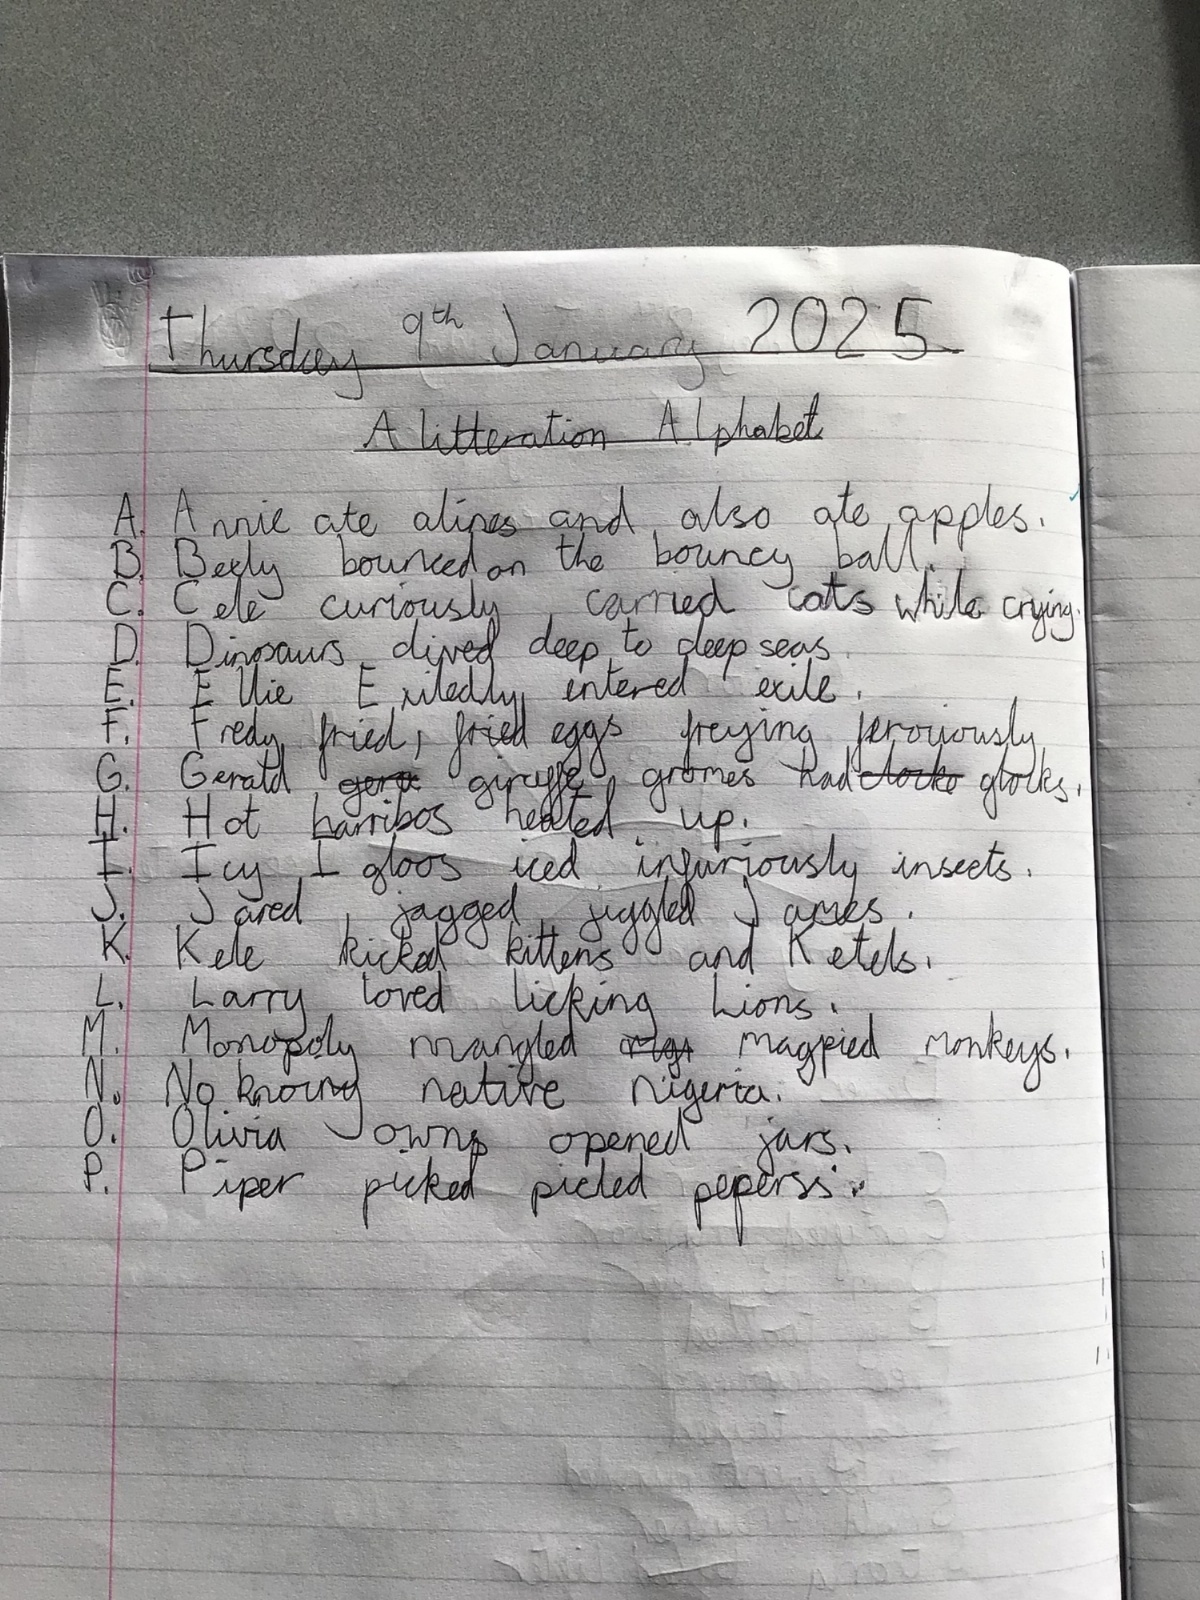 Thursday 9th January 2025
Alitteration Alphabet
A. Annie ate alines and also ate apples.
B. Beely bounced on the bouncy ball.
C. Cele curiously carried cats while crying.
D. Dinosaurs dived deep to deep seas.
E. Ellie Exiledly entered exile.
F. Fredy fried, fried eggs freying feroviously
G. Gerald giraffe, gromes had clocks glocks.
H. Hot harribos heated up.
I. Icy Igloos iced infuriously insects.
J. Jared, jagged, jiggled James.
K. Kele kicked kittens and Ketels.
L. Larry loved licking Lions.
M. Monopoly mangled magpied monkeys.
N. No knowing native Nigeria.
O. Olivia owns opened jars.
P. Piper picked picled peperss.